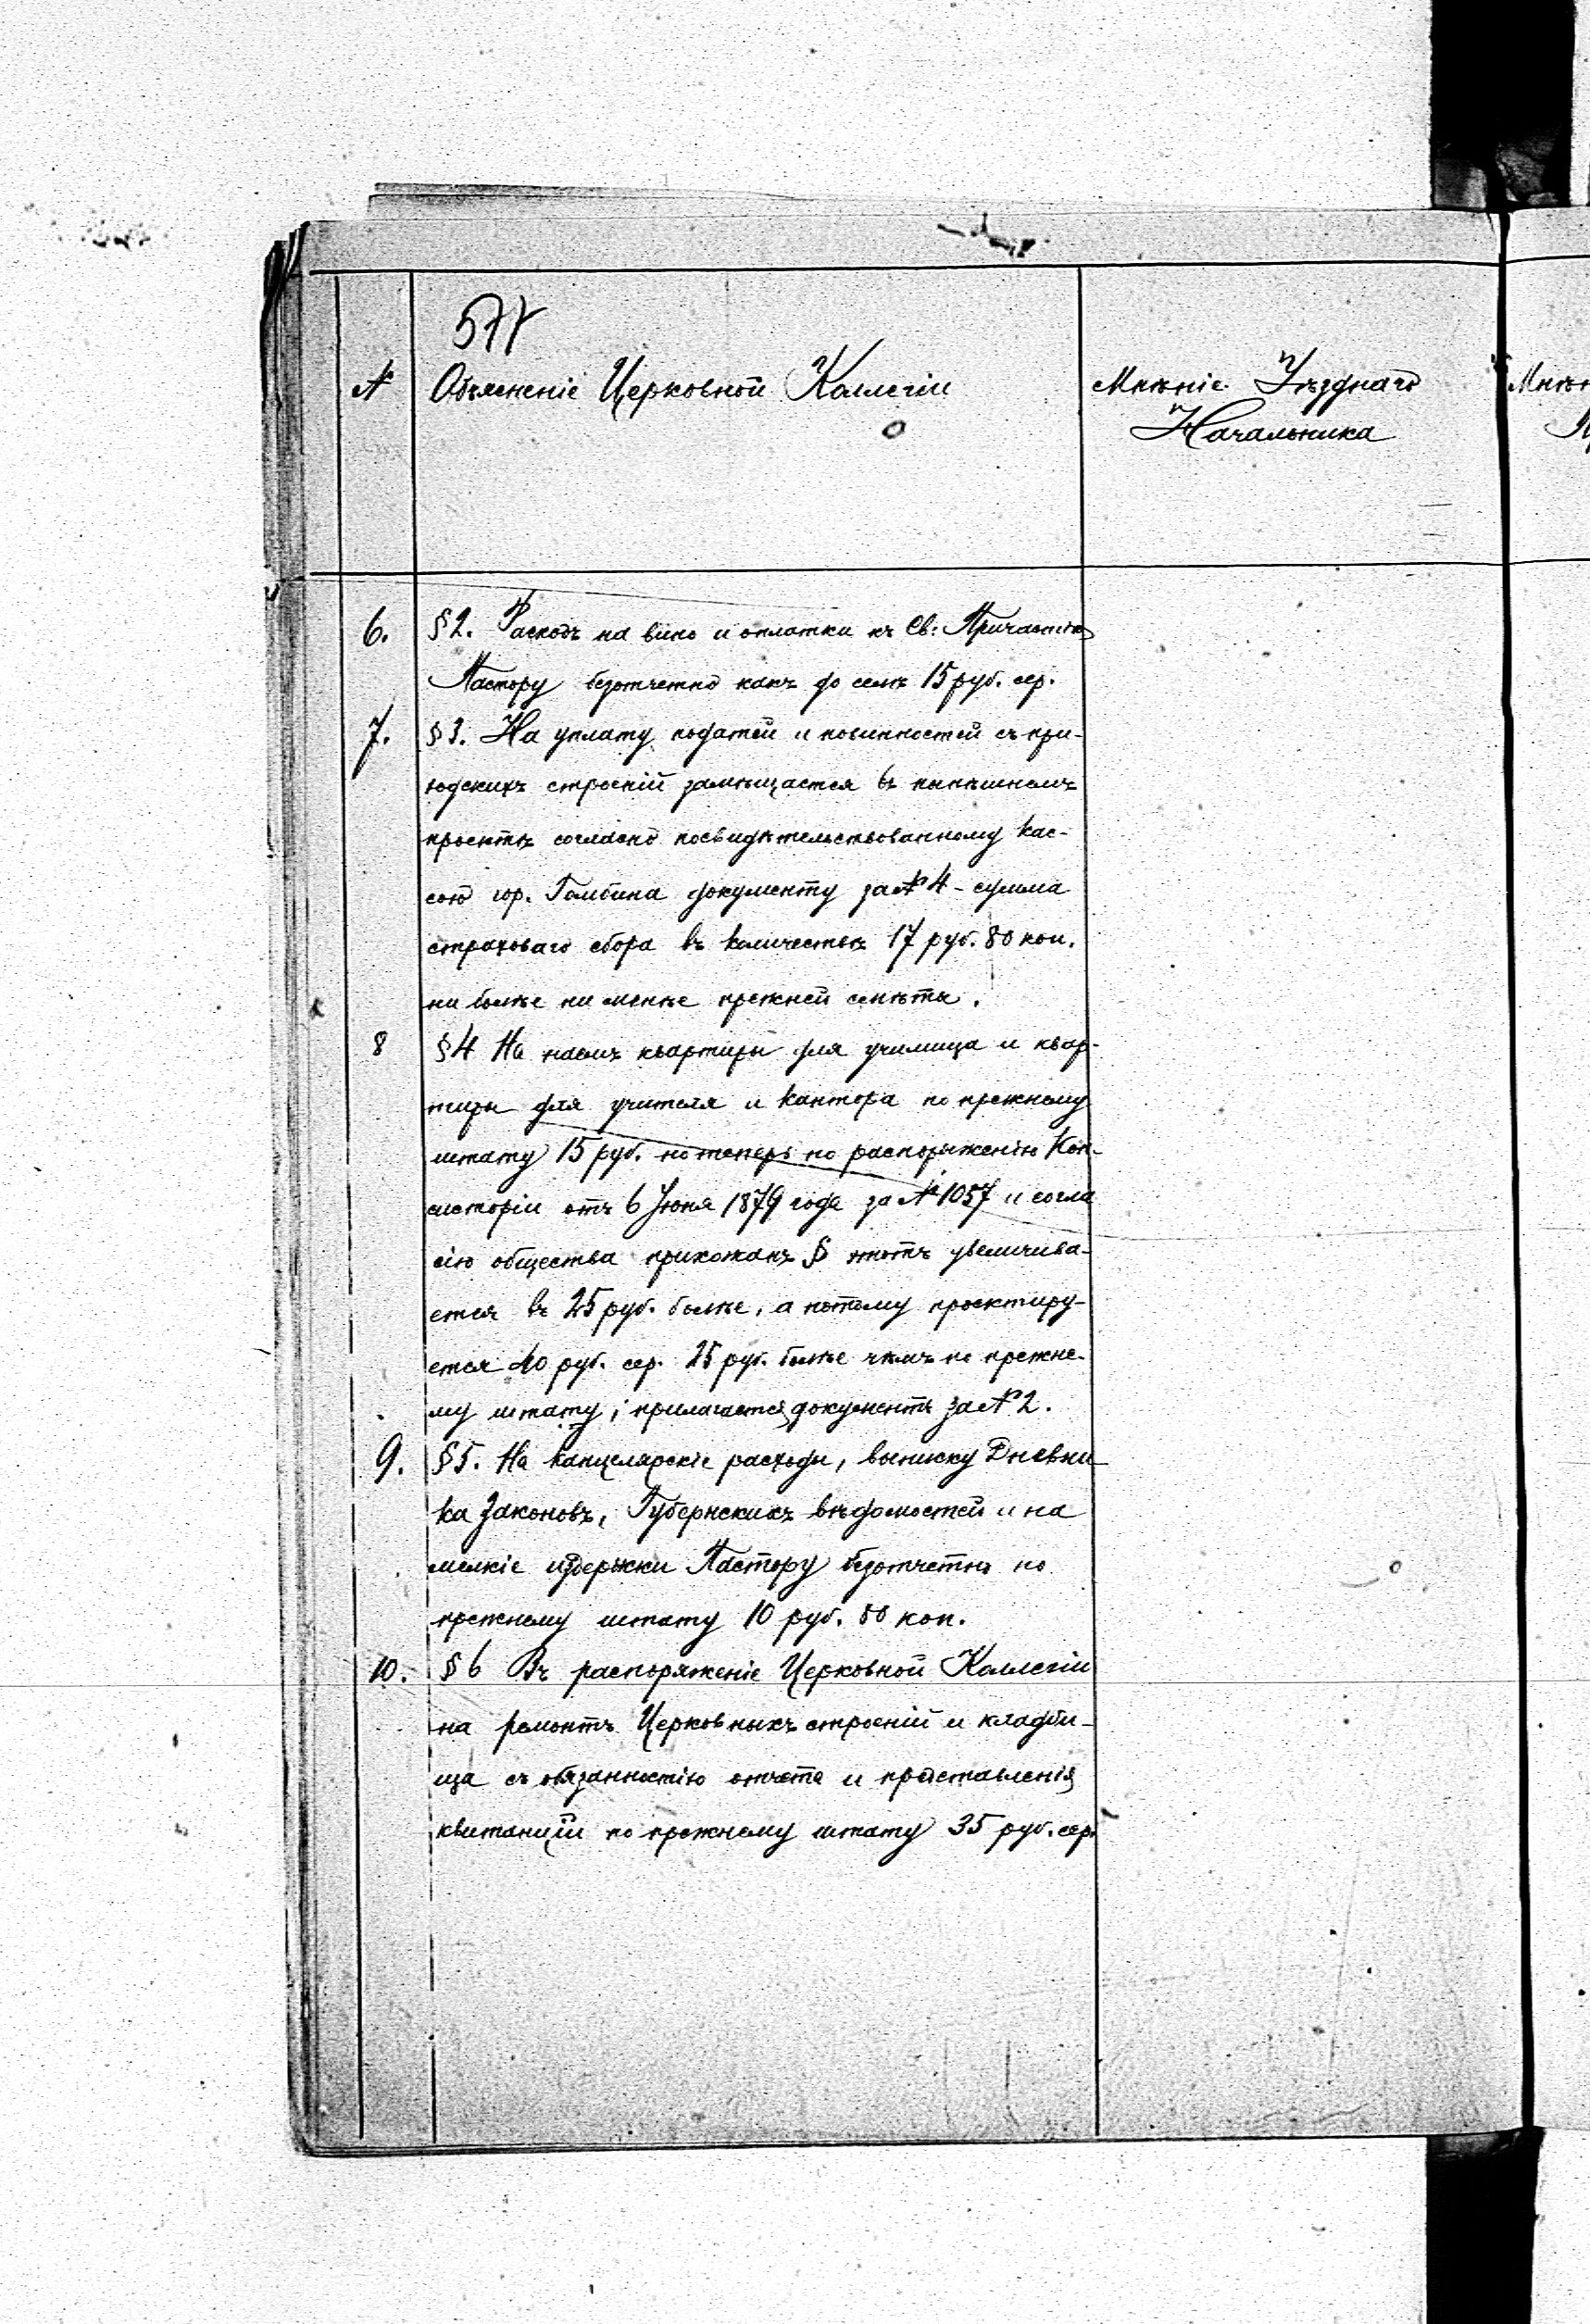 577
№ Объясненіе Церковной Коллегіи
Мнѣніе Уѣзднаго
Начальника
Мнѣн
6. §2. Расходъ на вино и оплатки къ Св: Причастію
Пастору безотчетно какъ до семъ 15 руб. сер.
7. §3. На уплату податей и повинностей съ при-
ходскихъ строеній замѣщается въ нынѣшнемъ
проектѣ согласно посвидѣтельствованному кас-
сою гор. Гомбина документу за № 4 - сумма
страховаго сбора въ количествѣ 17 руб. 80 коп.
ни болѣе ни менѣе прежней смѣты.
8 §4 На наемъ квартиры для училища и квар-
тиры для учителя и кантора по прежнему
штату 15 руб. но теперь по распоряженію Кон-
систоріи отъ 6 Іюня 1879 года за № 1057 и согла
сію общества прихожанъ § этотъ увеличива-
ется въ 25 руб. болѣе, а потому проектиру-
ется 40 руб. сер. 25 руб. болѣе чѣмъ по прежне-
му штату; прилагается документъ за № 2.
9. §5. На канцелярскіе расходы, выписку Дневни
ка Законовъ, Губернскихъ вѣдомостей и на
мелкіе издержки Пастору безотчетно по
прежнему штату 10 руб. 80 коп.
10. §6 Въ распоряженіе Церковной Коллегіи
на ремонтъ Церковныхъ строеній и кладби-
ща съ обязанностію отчета и представленія
квитанціи по прежнему штату 35 руб. сер.